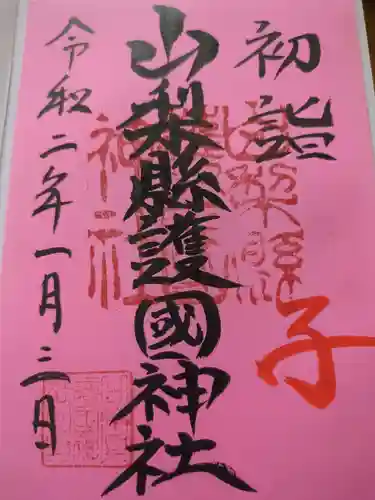 初詣
子
山梨縣護國神社
令和二年一月三日